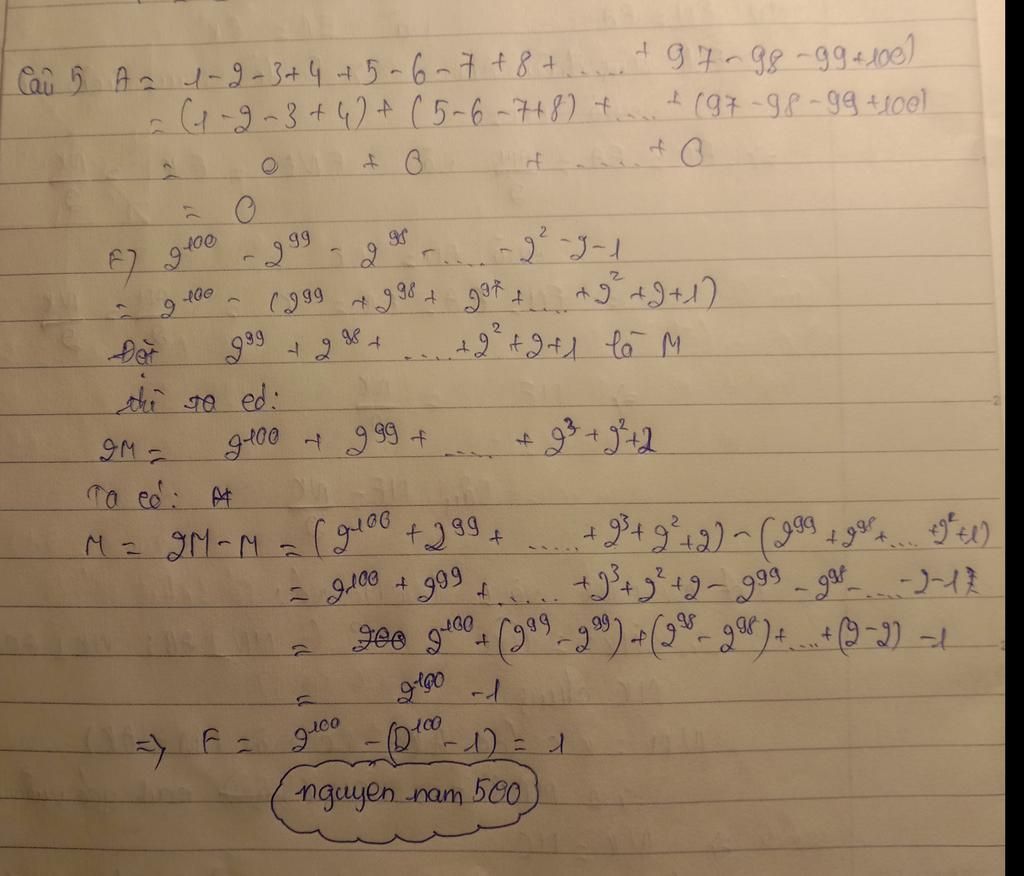 Câu 5 A = 1 - 2 - 3 + 4 + 5 - 6 - 7 + 8 + ...... + 97 - 98 - 99 + 100)
= (1 - 2 - 3 + 4) + (5 - 6 - 7 + 8) + ..... + (97 - 98 - 99 + 100)
= 0 + 0 + ...... + 0
= 0
F) 2^100 - 2^99 - 2^98 - ..... - 2^2 - 2 - 1
= 2^100 - (2^99 + 2^98 + 2^97 + ..... + 2^2 + 2 + 1)
Đặt 2^99 + 2^98 + ..... + 2^2 + 2 + 1 là M
thì ta có:
2M = 2^100 + 2^99 + ..... + 2^3 + 2^2 + 2
Ta có:
M = 2M - M = (2^100 + 2^99 + ...... + 2^3 + 2^2 + 2) - (2^99 + 2^98 + .... + 2^2 + 1)
= 2^100 + 2^99 + ...... + 2^3 + 2^2 + 2 - 2^99 - 2^98 - ..... - 2 - 1
= 2^100 + (2^99 - 2^99) + (2^98 - 2^98) + .... + (2 - 2) - 1
= 2^100 - 1
=> F = 2^100 - (2^100 - 1) = 1
nguyen nam 500